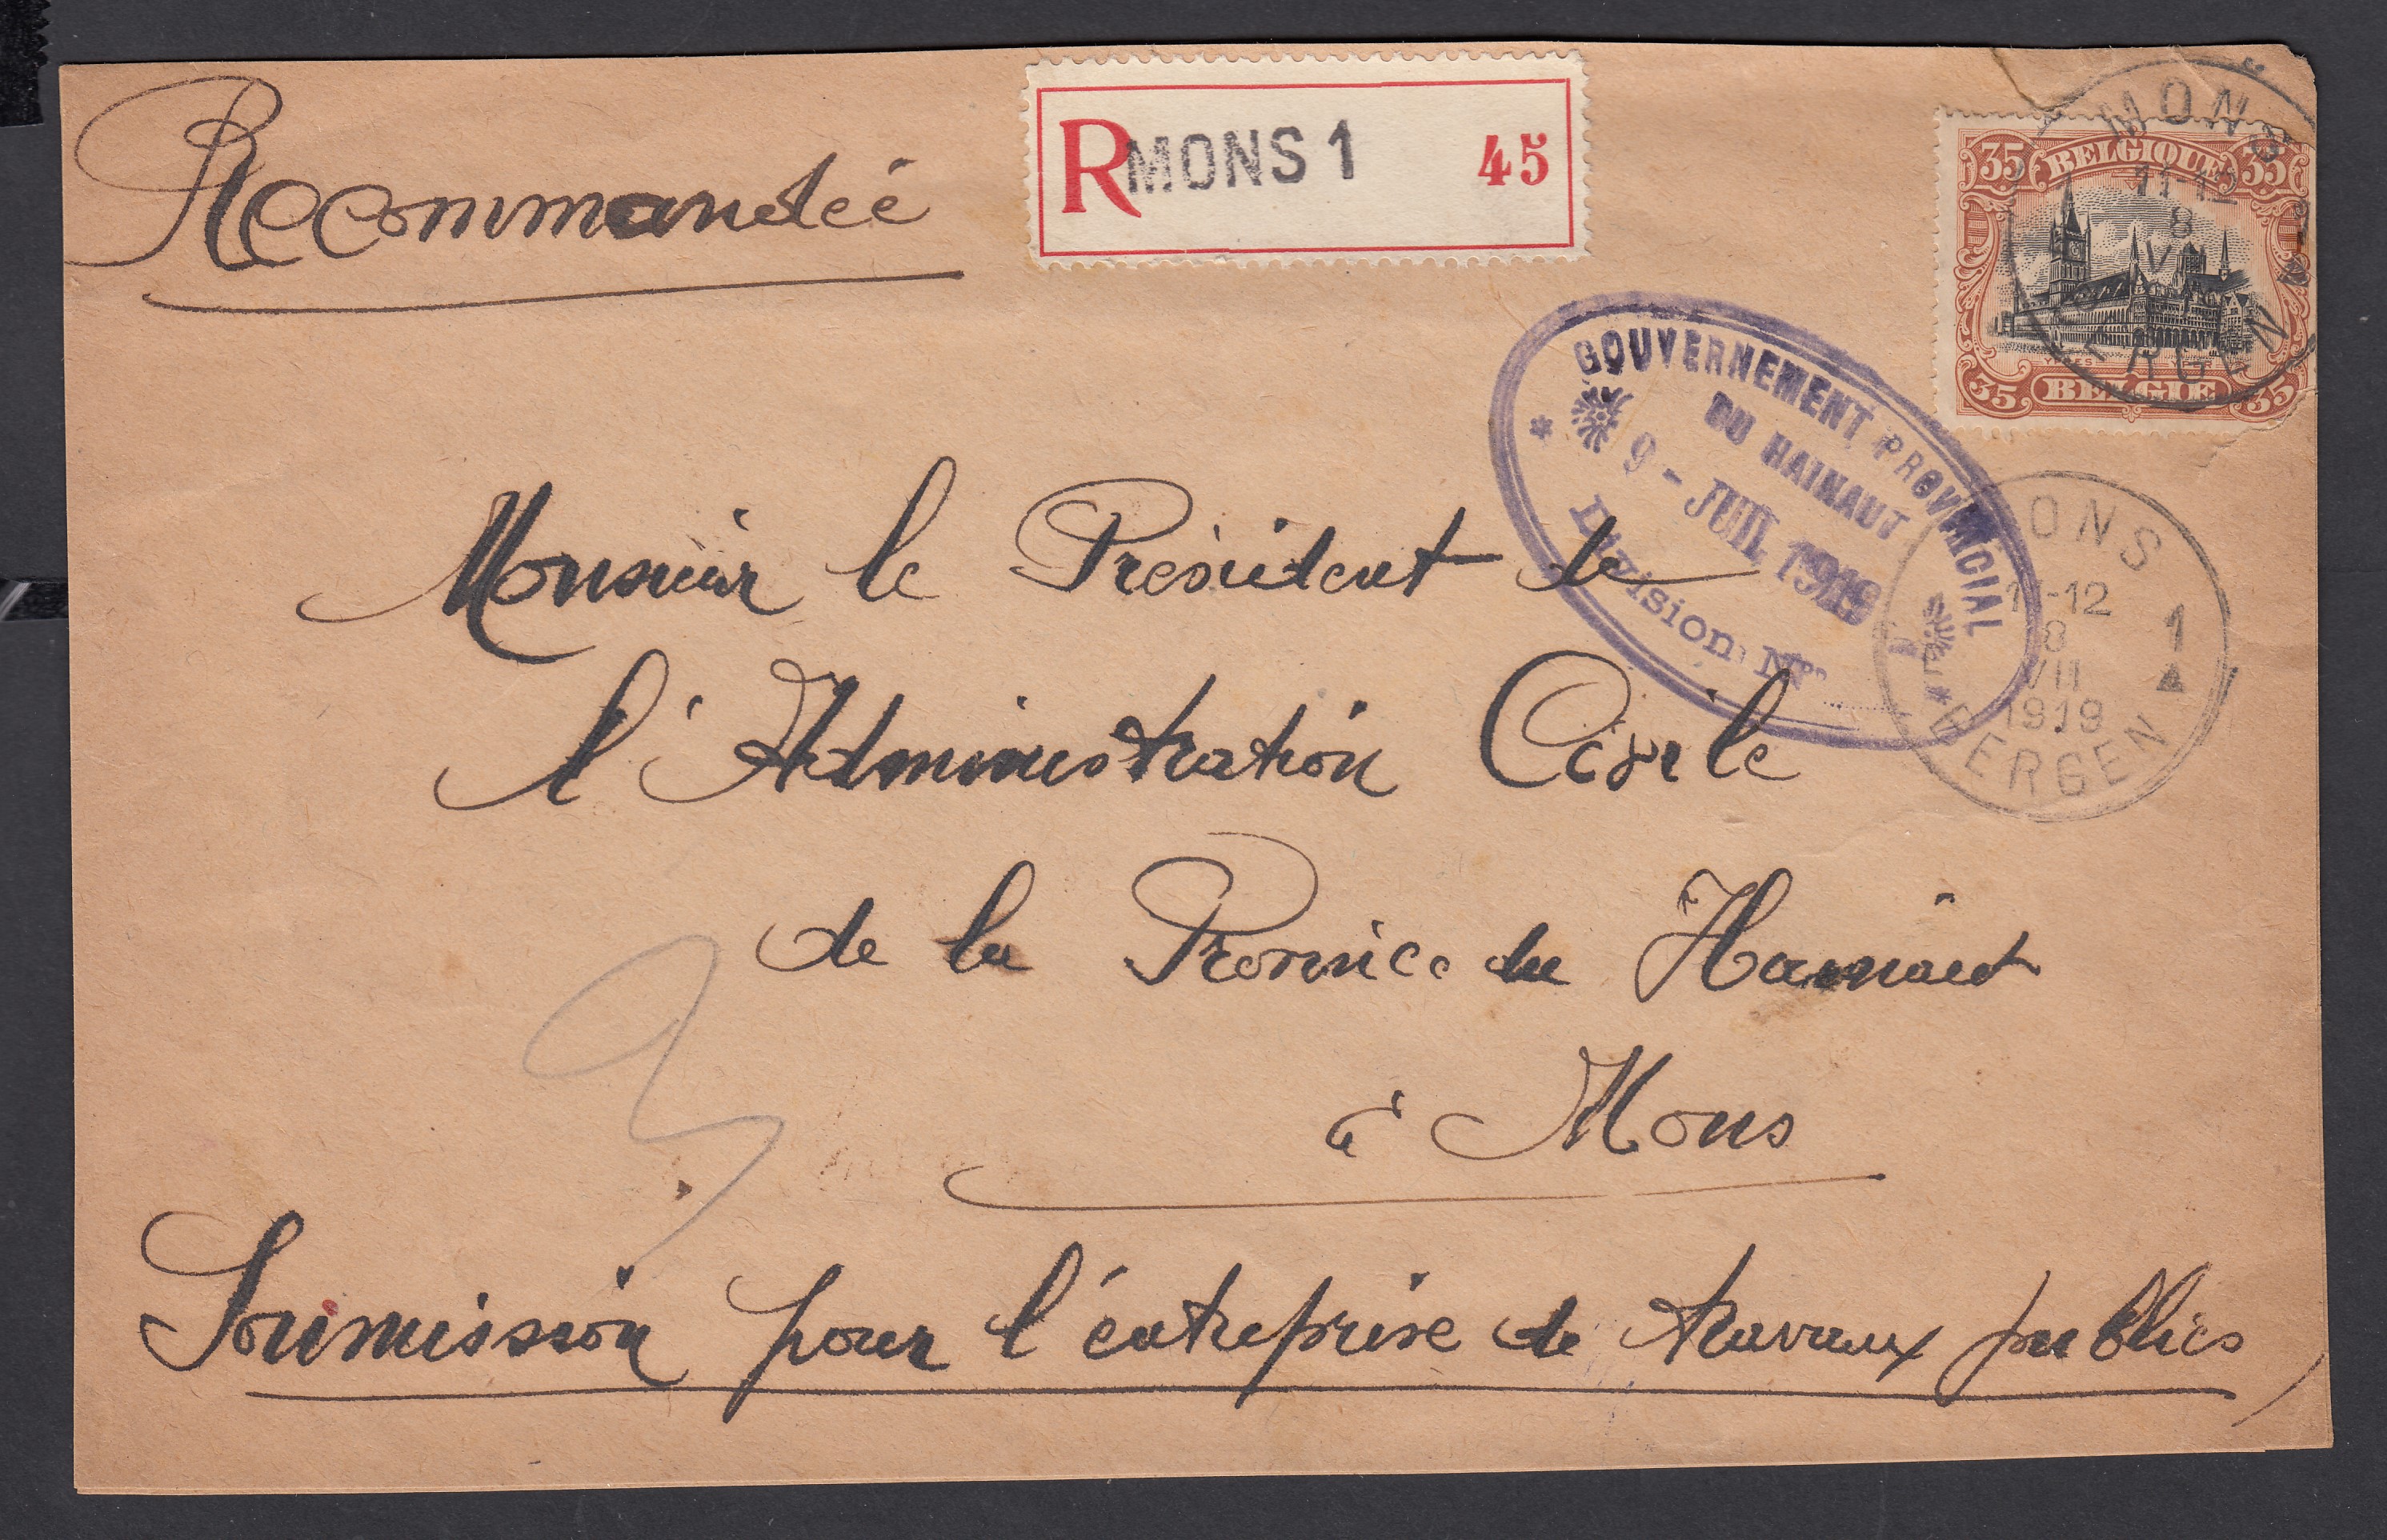 Recommandée
R MONS 1 45
MONS
35 BELGIQUE 35
11-12
8
V
YPRES
35 BELGIE 35
BERGEN
GOUVERNEMENT PROVINCIAL
DU HAINAUT
9 - JUIL 1919
Division Nº
MONS 1
11-12
8
VII
1919
BERGEN
Monsieur le Président de
l'Administration Civile
de la Province du Hainaut
à Mons
Soumission pour l'entreprise de travaux publics